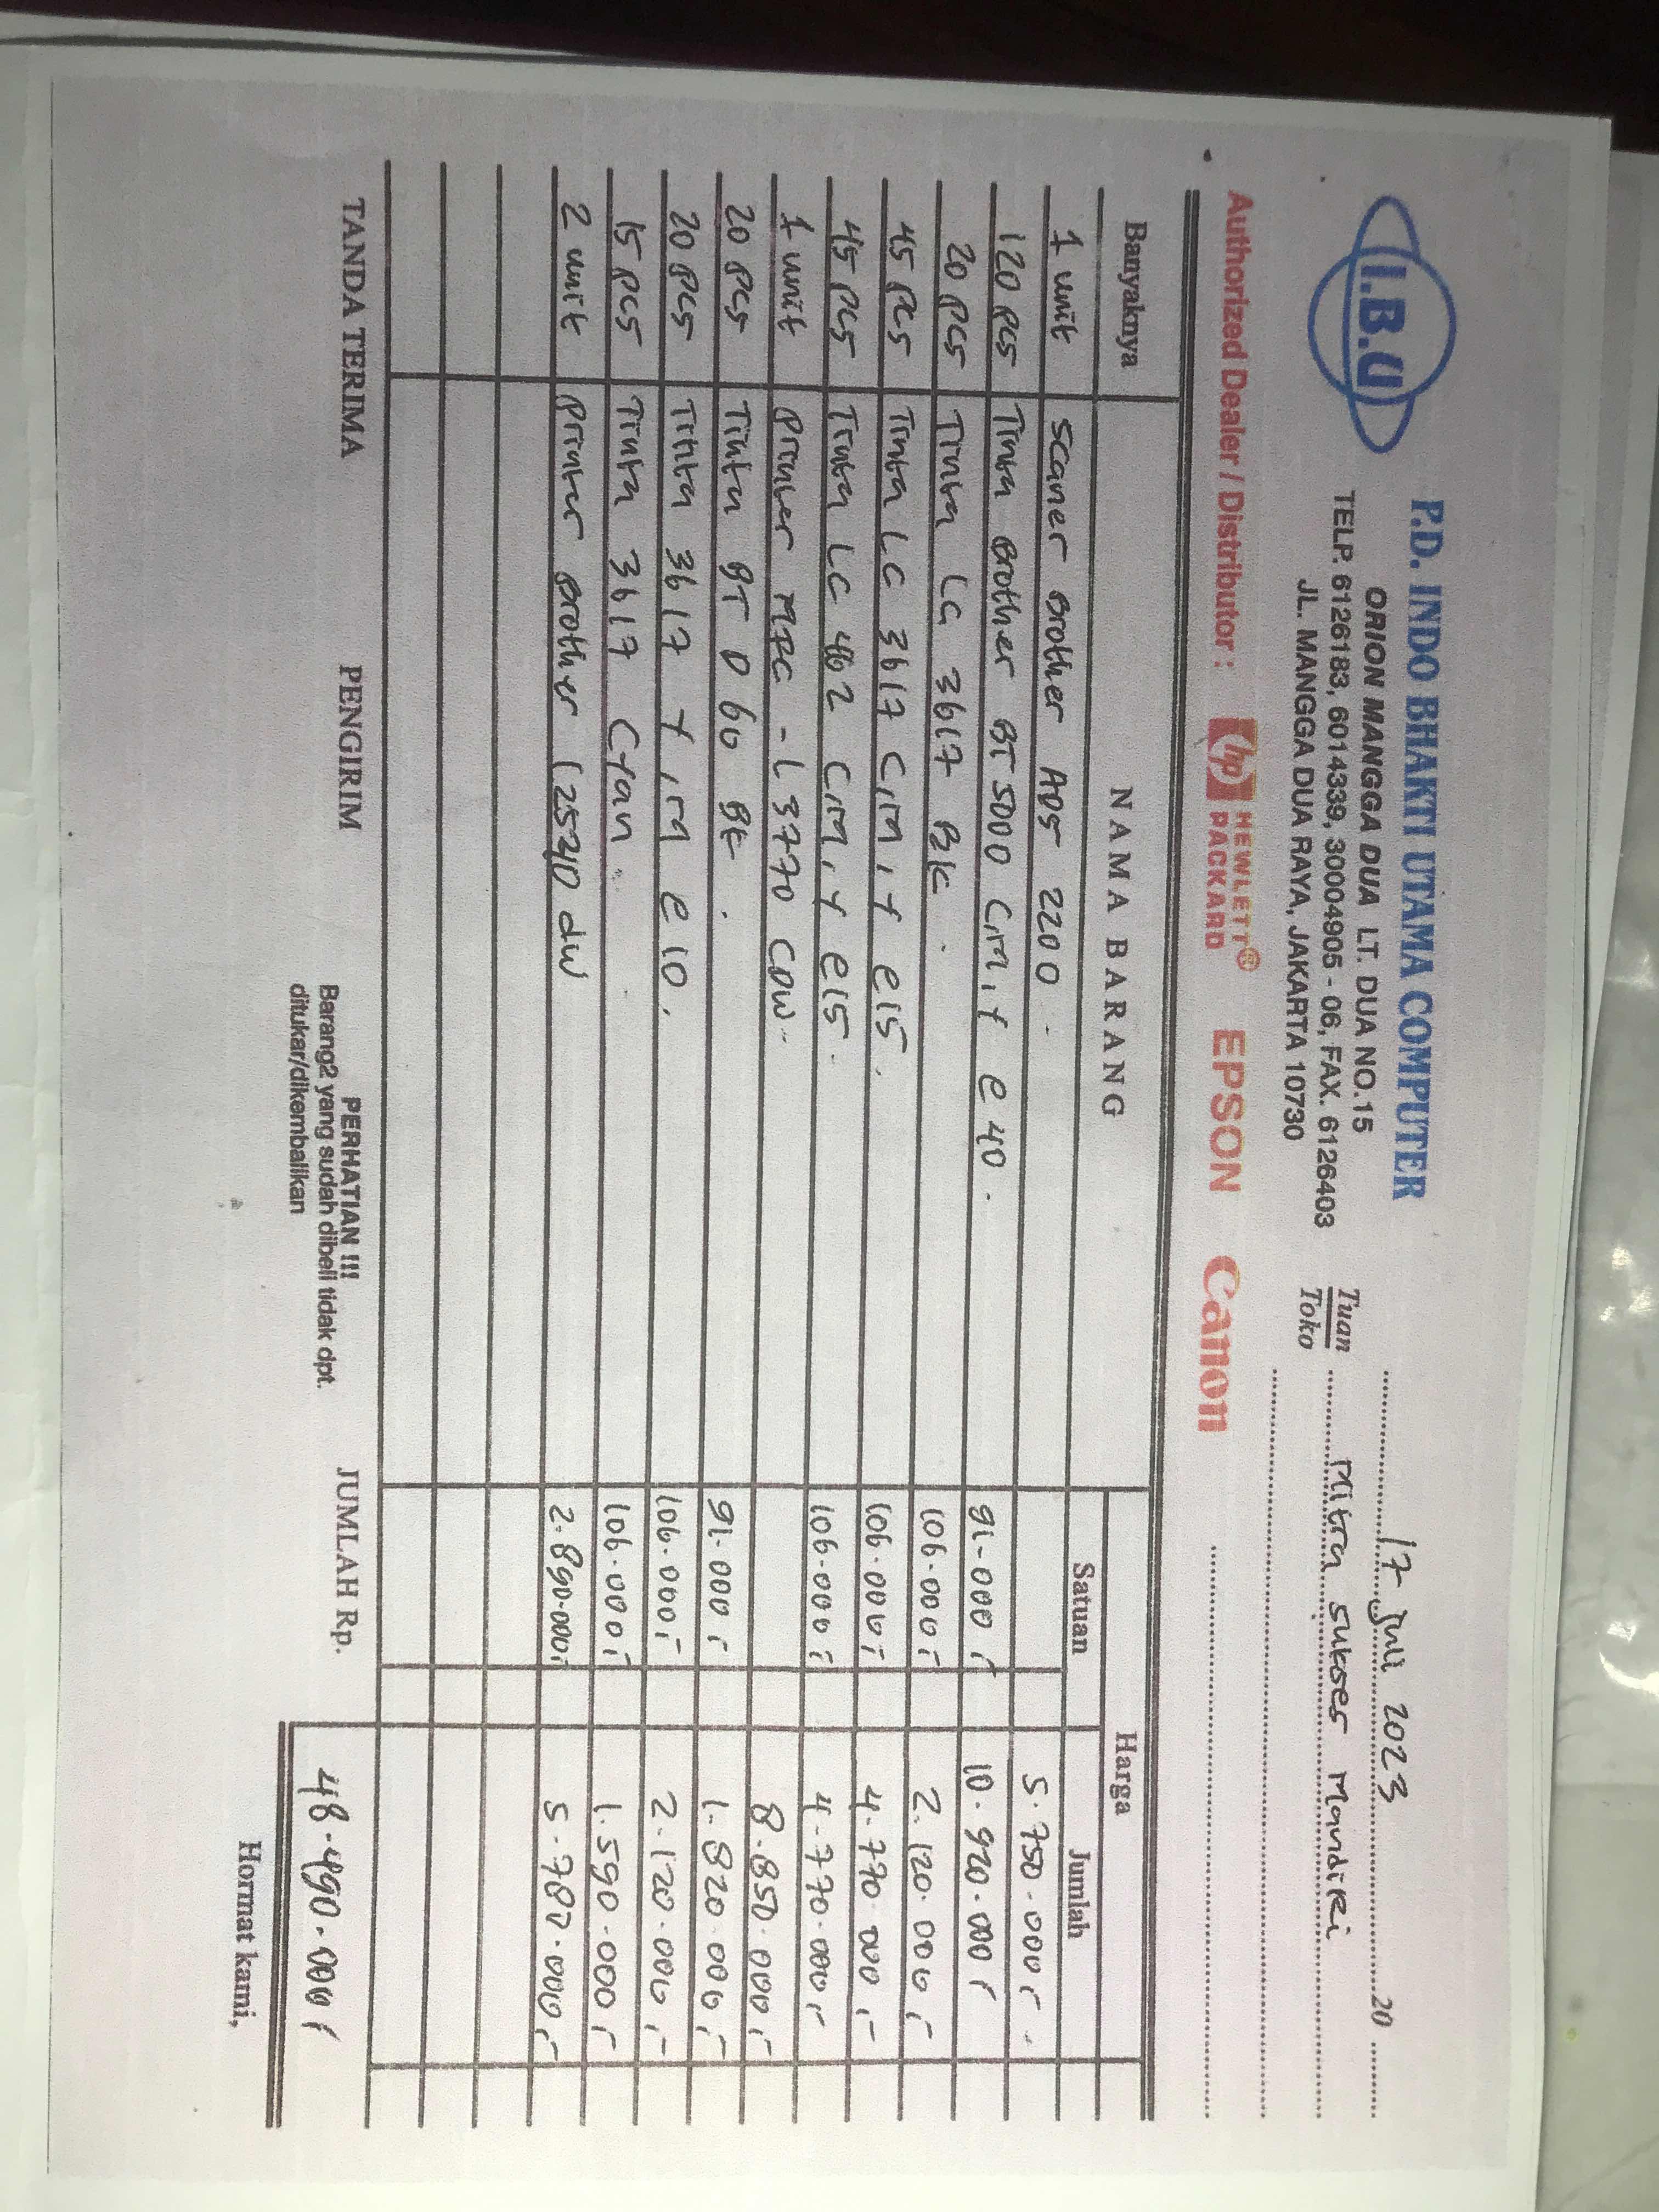 I.B.U
P.D. INDO BHAKTI UTAMA COMPUTER
ORION MANGGA DUA LT. DUA NO.15
TELP. 6126183, 6014339, 30004905 - 06, FAX. 6126403
JL. MANGGA DUA RAYA, JAKARTA 10730
17 Juli 2023 20
Tuan
Toko
Mitra Sukses Mandiri
Authorized Dealer / Distributor : hp HEWLETT® PACKARD EPSON Canon
Banyaknya NAMA BARANG Harga
Satuan Jumlah
1 unit Scaner Brother ADS 2200 5.750.000,-
120 pcs Tinta Brother BT 5000 C,M,Y @ 40. 91.000,- 10.920.000,-
20 pcs Tinta LC 3617 BK. 106.000,- 2.120.000,-
45 pcs Tinta LC 3617 C,M,Y @15. 106.000,- 4.770.000,-
45 pcs Tinta LC 462 C,M,Y @15. 106.000,- 4.770.000,-
1 unit Printer MFC - L3770 CDW. 8.850.000,-
20 pcs Tinta BT D 60 BK. 91.000,- 1.820.000,-
20 pcs Tinta 3617 Y,M @ 10. 106.000,- 2.120.000,-
15 pcs Tinta 3617 Cyan. 106.000,- 1.590.000,-
2 unit Printer Brother L2540 dw 2.890.000,- 5.780.000,-
TANDA TERIMA PENGIRIM PERHATIAN !!! JUMLAH Rp. 48.490.000,-
Barang2 yang sudah dibeli tidak dpt.
ditukar/dikembalikan
Hormat kami,